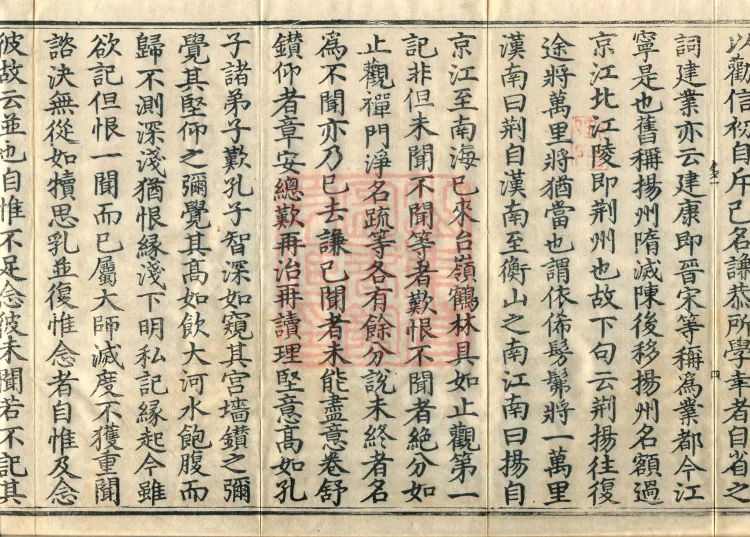 以勸信初自斥己名謙恭所學幸者自省之
詞建業亦云建康即晉宋等稱為業都今江
寧是也舊稱揚州隋滅陳後移揚州名額過
京江北江陵即荆州也故下句云荆揚往復
途將萬里將猶當也謂依俙髣髴將一萬里
漢南曰荆自漢南至衡山之南江南曰揚自
京江至南海已來台嶺鶴林具如止觀第一
記非但未聞不聞等者歎恨不聞者絶分如
止觀禪門淨名疏等各有餘分說未終者名
為不聞亦乃已去謙已聞者未能盡意卷舒
鑚仰者章安總歎再治再讀理堅意髙如孔
子諸弟子歎孔子智深如窺其宮墻鑚之彌
覺其堅仰之彌覺其髙如飲大河水飽腹而
歸不測深淺猶恨緣淺下明私記緣起今雖
欲記但恨一聞而已屬大師滅度不獲重聞
諮決無從如犢思乳並復惟念者自惟及念
彼故云並也自惟不足念彼未聞若不記其